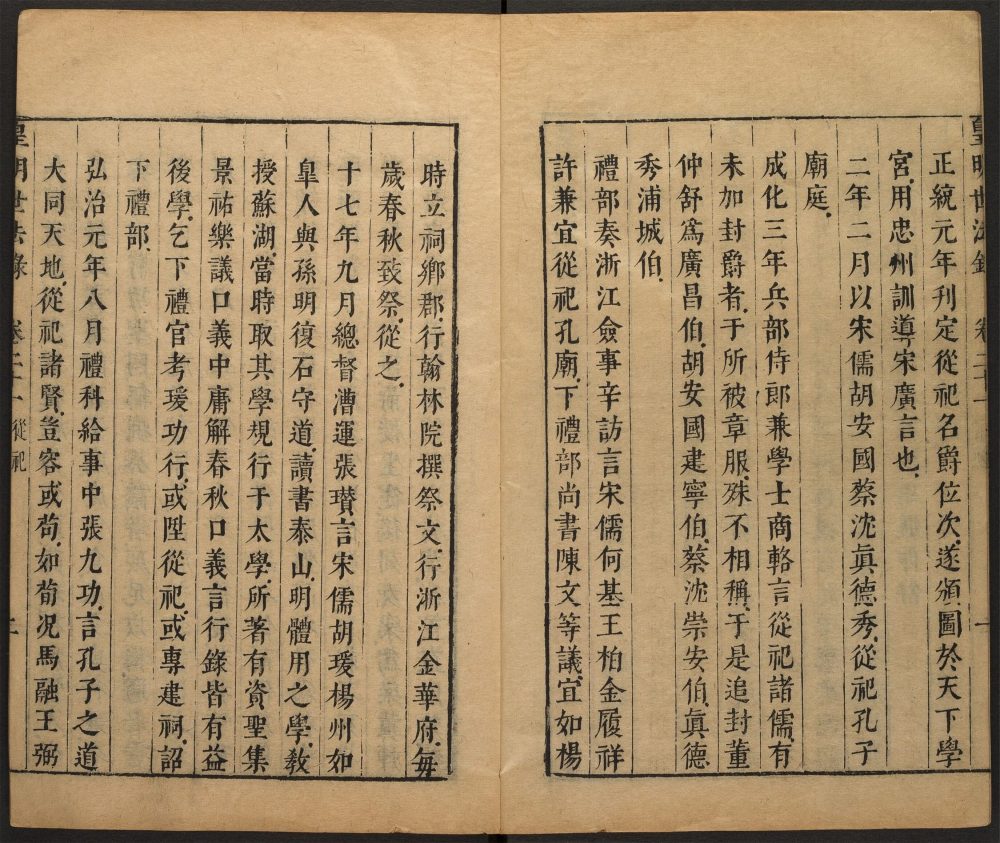 皇明世法錄 卷二十一 一
正統元年刊定從祀名爵位次遂頒圖於天下學
宮用忠州訓導宋廣言也
二年二月以宋儒胡安國蔡沈眞德秀從祀孔子
廟庭
成化三年兵部侍郎兼學士商輅言從祀諸儒有
未加封爵者于所被章服殊不相稱于是追封董
仲舒爲廣昌伯胡安國建寧伯蔡沈崇安伯眞德
秀浦城伯
禮部奏浙江僉事辛訪言宋儒何基王柏金履祥
許兼宜從祀孔廟下禮部尚書陳文等議宜如楊
時立祠鄉郡行翰林院撰祭文行浙江金華府每
歲春秋致祭從之
十七年九月總督漕運張瓚言宋儒胡瑗楊州如
臯人與孫明復石守道讀書泰山明體用之學教
授蘇湖當時取其學規行于太學所著有資聖集
景祐樂議口義中庸解春秋口義言行錄皆有益
後學乞下禮官考瑗功行或陞從祀或專建祠詔
下禮部
弘治元年八月禮科給事中張九功言孔子之道
大同天地從祀諸賢豈容或苟如荀况馬融王弼
皇明世法錄 卷二十一 從祀 二